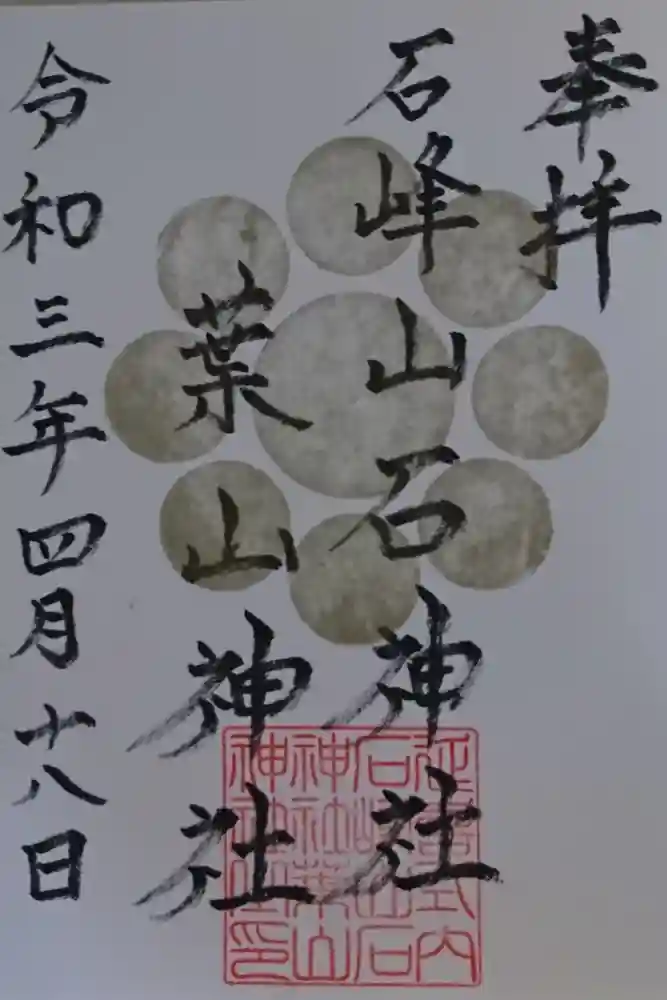 奉拝
石峰山石神社
葉山神社
令和三年四月十八日
延喜式内
石峰山石
神社葉山
神社之印